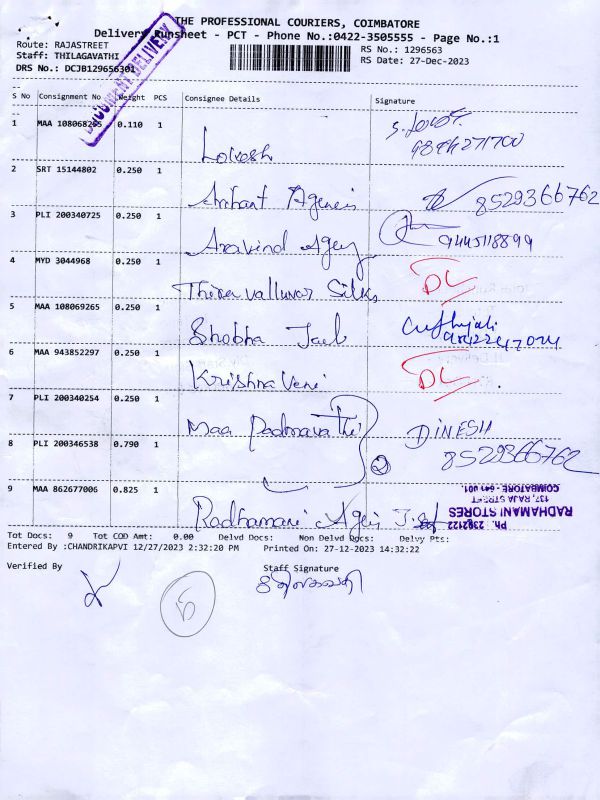 THE PROFESSIONAL COURIERS, COIMBATORE
Delivery Runsheet - PCT - Phone No.:0422-3505555 - Page No.:1
Route: RAJASTREET
RS No.: 1296563
Staff: THILAGAVATHI
RS Date: 27-Dec-2023
DRS No.: DCJB129656301
DOCUMENT DELIVERY
S No Consignment No Weight PCS Consignee Details Signature
1 MAA 108068245 0.110 1 Lokesh
2 SRT 15144802 0.250 1 Arihant Agencis 8529366762
3 PLI 200340725 0.250 1 Aravind Agey 9445118899
4 MYD 3044968 0.250 1 Thiruvalluvar Silks DL
5 MAA 108069265 0.250 1 Shobha
6 MAA 943852297 0.250 1 Krishna Veni DL
7 PLI 200340254 0.250 1 Maa Padmavathi DINESH
8 PLI 200346538 0.790 1 2 8529366762
9 MAA 862677006 0.825 1 Radhamani
RADHAMANI STORES
137, RAJA STREET
COIMBATORE - 641 001.
Ph: 2392122
Tot Docs: 9 Tot COD Amt: 0.00 Delvd Docs: Non Delvd Docs: Delvy Pts:
Entered By :CHANDRIKAPVI 12/27/2023 2:32:20 PM Printed On: 27-12-2023 14:32:22
Verified By Staff Signature